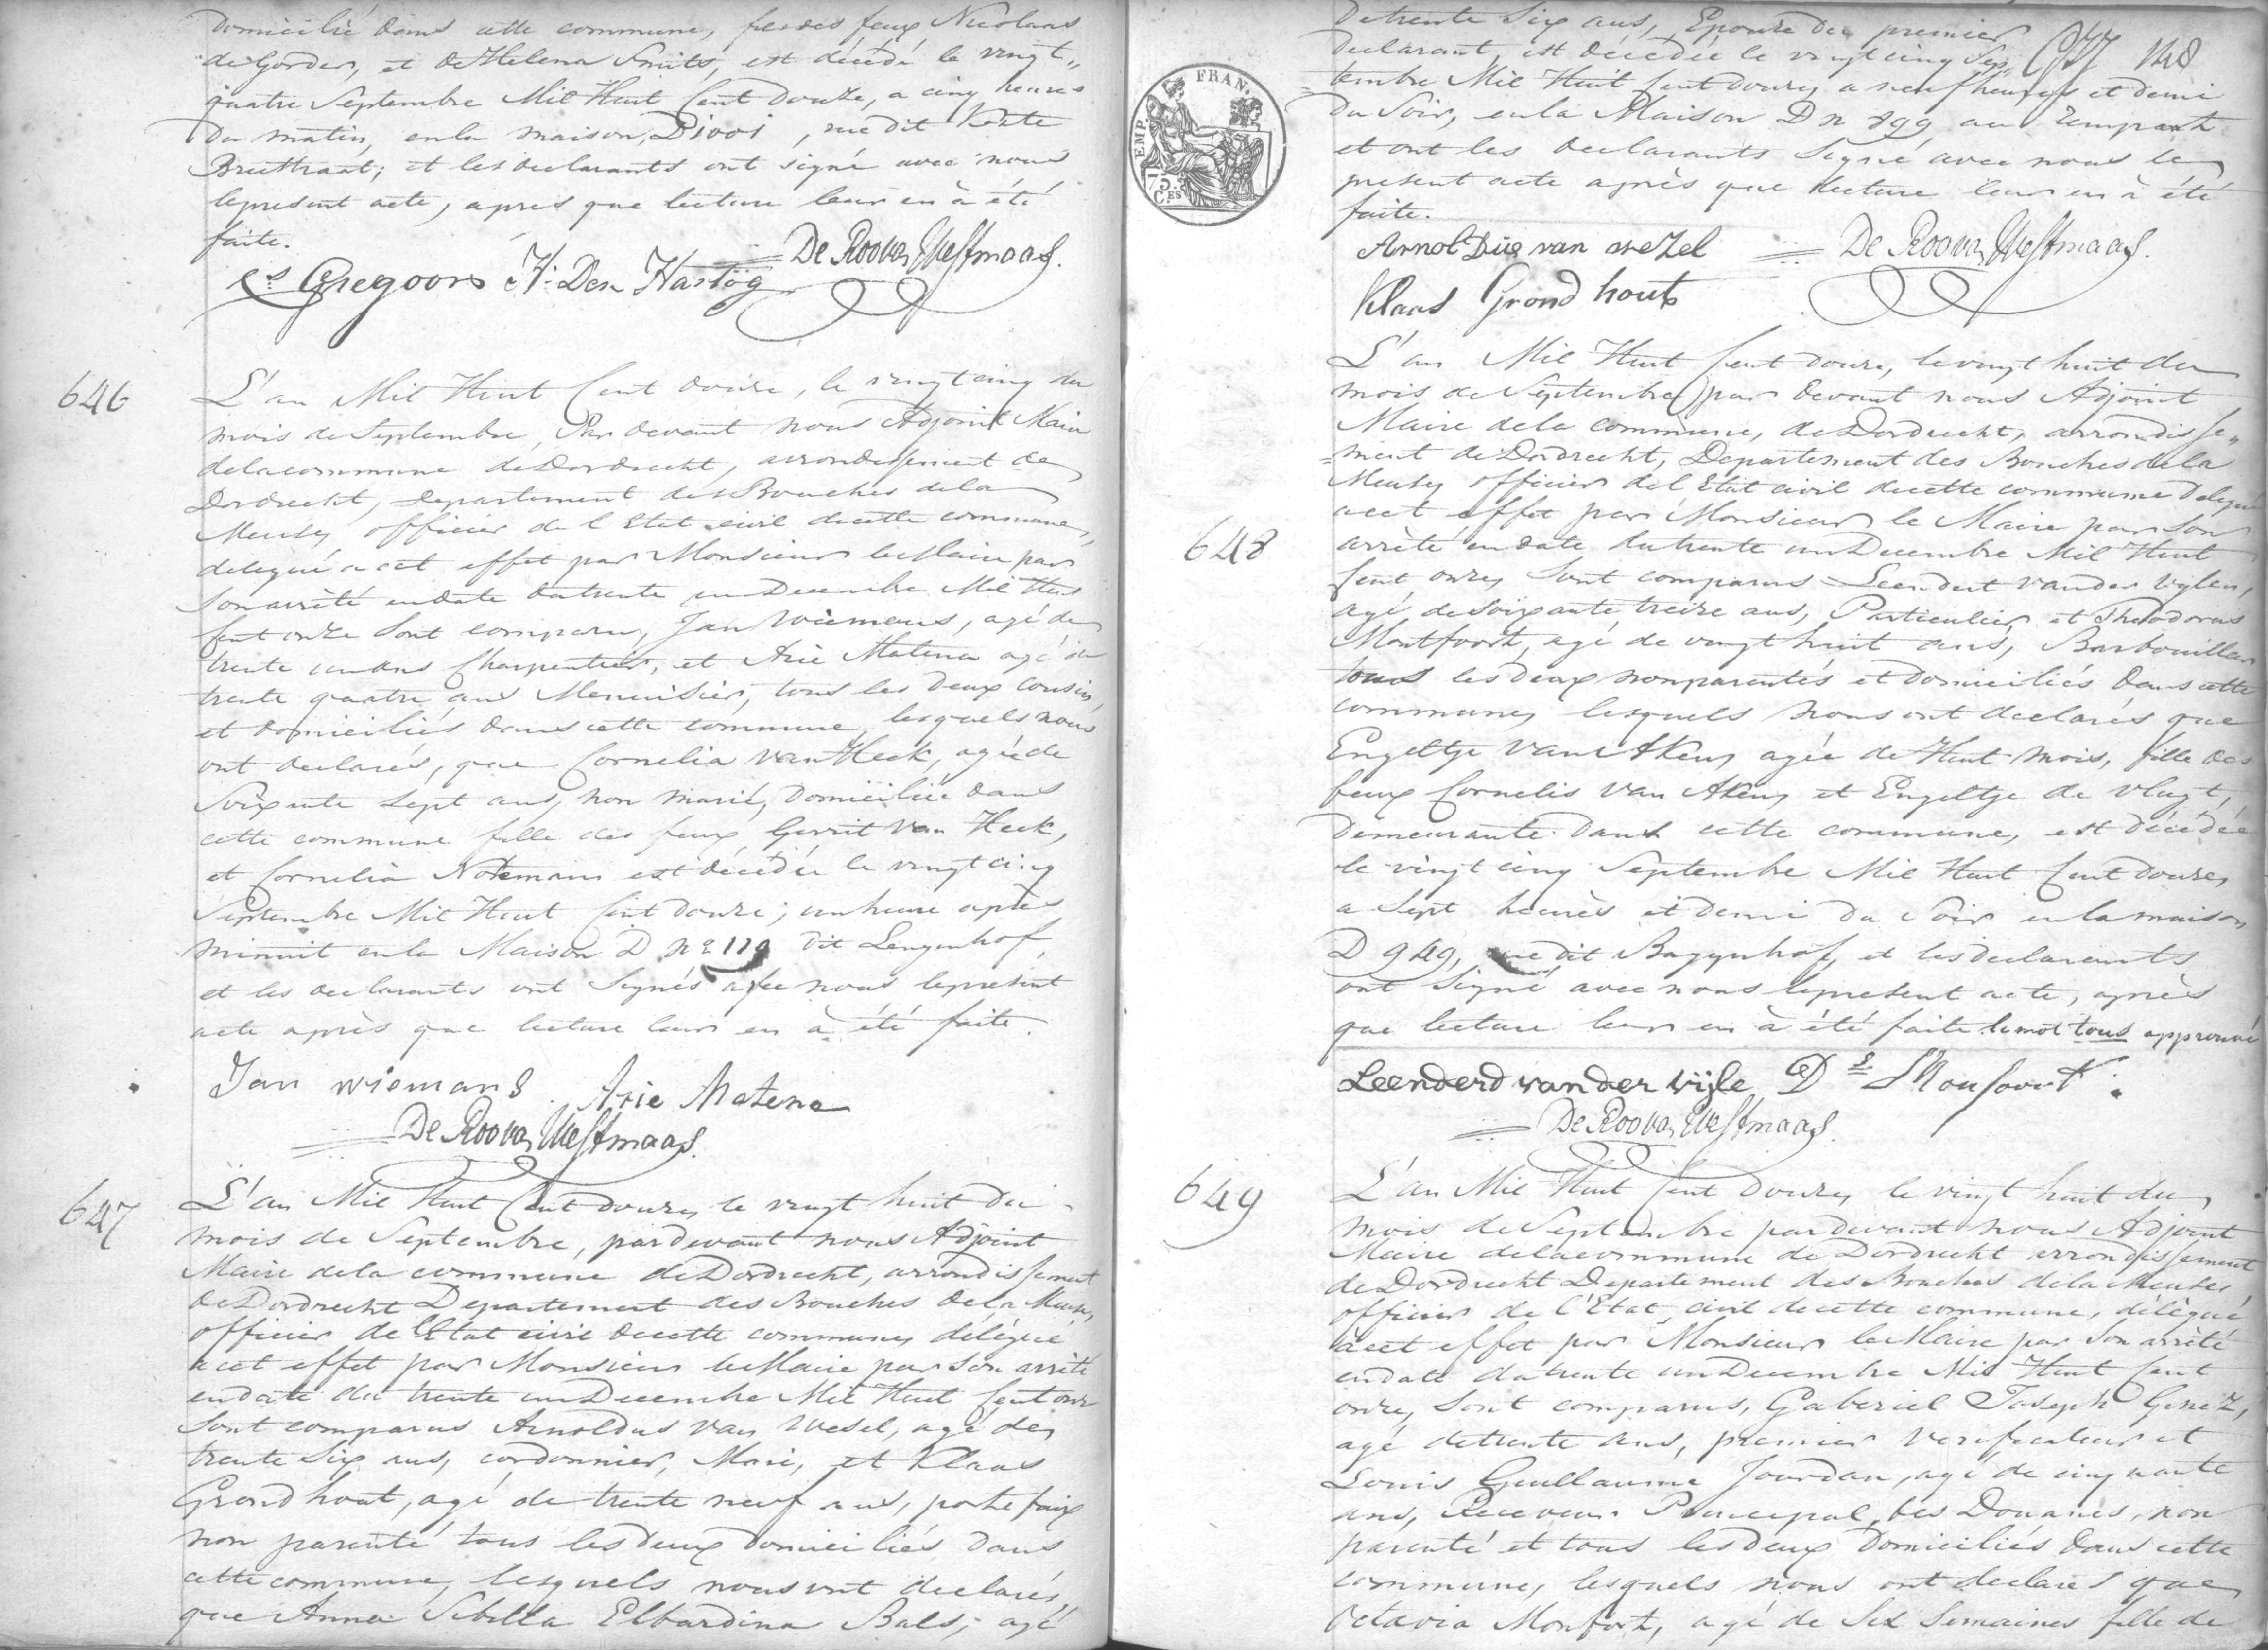 domicilié dans cette commune, fils des feux Nicolaas
de Gorder, et de Helena Smits, est décédé le vingt„
quatre Septembre Mil Huit Cent Douze, a cinq heures
du matin, en la maison, D1001, rue dit Korte
Breestraat; et les declarants ont signé avec nous
le present acte, apres que lecture leur en à été
faite.
Gregoors H: Den Hartog De Roo van Westmaas.
646
L'an Mil Huit Cent douze, le vingt cinq du
mois de Septembre, Par devant nous Adjoint Maire
de la commune de Dordrecht, arrondissement de
Dordrecht, Departement des Bouches de la
Meuse, officier de l'Etat civil de cette commune,
delegué a cet effet par Monsieur le Maire par
son arrêté en date du trente un Decembre Mil Huit
Cent onze sont comparu, Jan Wiemans, agé de
trente un ans Charpentier, et Arie Matena agé de
trente quatre ans Menuisier, tous les deux cousins,
et domiciliés dans cette commune, lesquels nous
ont declarés, que Cornelia van Heck, agée de
Soixente sept ans, non marié, domiciliée dans
cette commune fille des feux, Gerrit van Heck,
et Cornelia Notemans est décédée le vingt cinq
Septembre Mil Huit Cent Douze; un heure après
minuit en la Maison D no 119 dit Lengenhof,
et les declarants ont Signés avec nous le present
acte après que lecture leur en à été faite.
Jan wiemans. Arie Matena
De Roo van Westmaas.
647
L'an Mil Huit Cent douze, le vingt huit du
mois de Septembre, pardevant nous Adjoint
Maire de la commune de Dordrecht, arrondissement
de Dordrecht Departement des Bouches de la Meuse,
officier de l'Etat civil de cette commune, délégué
a cet effet par Monsieur le Maire par son arrêté
en date du trente un Decembre Mil Huit Cent onze
sont comparus Arnoldus van Wesel, agé de
trente six ans, cordonnier, Mari, et Klaas
Grondhout, agé de trente neuf ans, porte faix
non parenté tous les deux domiciliés dans
cette commune, lesquels nous ont declarés,
que Anna Sibilla Elbardina Bals, agé
de trente Six ans, Epouse du premier
declarant, est décédée le vingt cinq Sep„ 148
tembre Mil Huit Cent douze, a neuf heures et demi
du Soir, en la Maison D n 899 au rempart
et ont les declarants Signé avec nous le
present acte après que lecture leur en à été
faite.
EMP. FRAN.
75.
C.ES
Arnoldus van wezel De Roo van Westmaas.
Klaas Grondhout
648
L'an Mil Huit Cent douze, le vingt huit du
mois de Septembre, par devant nous Adjoint
Maire de la commune, de Dordrecht, arrondisse„
ment de Dordrecht, Departement des Bouches de la
Meuse, officier de l'Etat civil de cette commune delegué
a cet effet par Monsieur le Maire par son
arrêté en date du trente un Decembre Mil Huit
Cent onze, sont comparus Leendert van der Vyleu,
agé de Soixante treize ans, Particulier, et Theodorus
Montfoort, agé de vingt huit ans, Barbouilleur
tous les deux nonparentés et domiciliés dans cette
commune, lesquels nous ont declarés que
Engeltje van Aken, agée de Huit mois, fille des
feux Cornelis van Aken, et Engeltje de Vlugt,
demeurante dans cette commune, est décédée
le vingt cinq Septembre Mil Huit Cent douze,
a Sept heures et demi du Soir en la maison
D 949, rue dit Bagynhof, et les declarants
ont Signé avec nous le present acte, après
que lecture leur en à été faite le mot tous approuvé
Leenderd van der vijle
De Roo van Westmaas.
649
L'an Mil Huit Cent Douze, le vingt huit du
mois de Septembre pardevant nous Adjoint
Maire de la commune de Dordrecht arrondissement
de Dordrecht Departement des Bouches de la Meuse,
officier de l'Etat civil de cette commune, délégué
à cet effet par Monsieur le Maire par son arrêté
en date du trente un Decembre Mil Huit Cent
onze, sont comparus, Gaberiel Joseph Genez,
agé de trente ans, premier verificateur et
Louis Guillaume Jourdan, agé de cinquante
ans, Receveur Principal des Douanes, non
parenté et tous les deux domiciliés dans cette
commune, lesquels nous ont declarés que
Octavia Monfort, agé de Six Semaines fille de